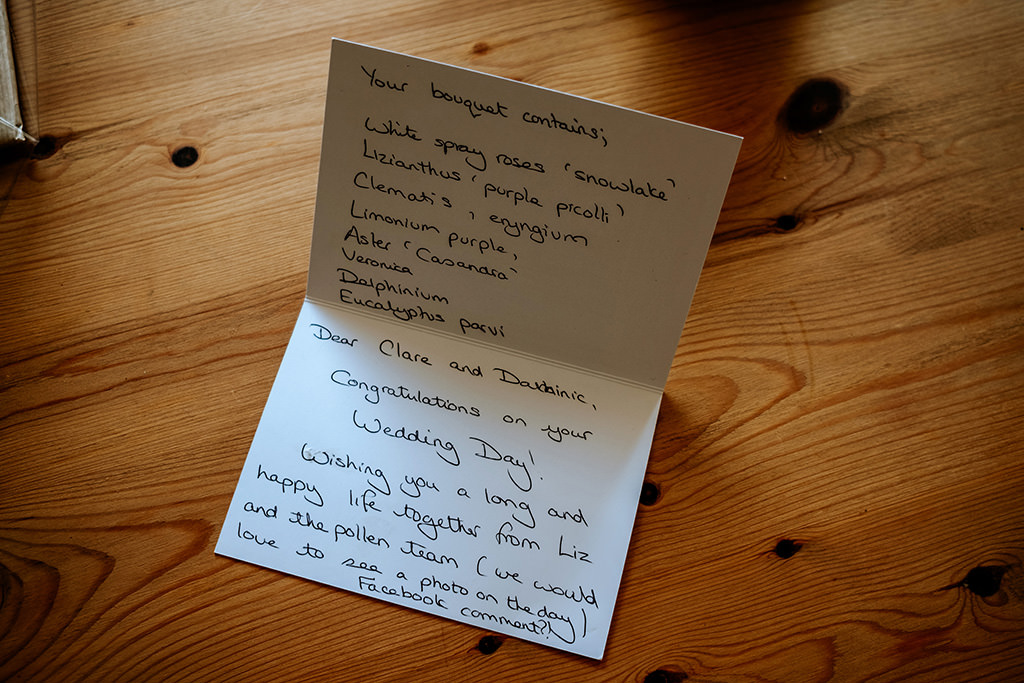 Your bouquet contains;
White spray roses 'snowlake'
Lizianthus 'purple picolli'
Clematis, eryngium
Limonium purple,
Aster 'Casandra'
Veronica
Delphinium
Eucalyptus parvi
Dear Clare and
Congratulations on your
Wedding Day!
Wishing you a long and
happy life together from Liz
and the pollen team (we would
love to see a photo on the day)
Facebook comment?!